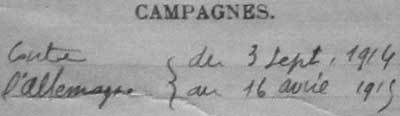 CAMPAGNES.
Contre { du 3 Sept. 1914
l'Allemagne { au 16 avril 1915